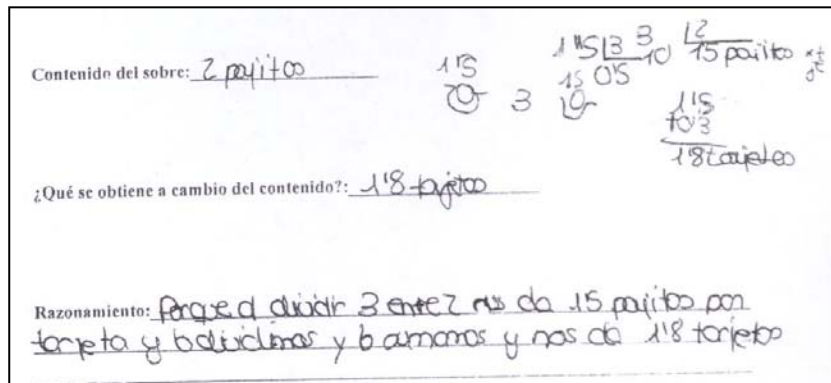 Contenido del sobre: 2 payitos
1'5
3
1'5 3
15 0'5
3
10
2
15 pajitos
1'5
+0'3
1'8 tarjetas
¿Qué se obtiene a cambio del contenido?: 1'8 tarjetas
Razonamiento: Porque al dividir 3 entre 2 nos da 15 pajitos por
tarjeta y lo dividimos y lo sumamos y nos da 1'8 tarjetas